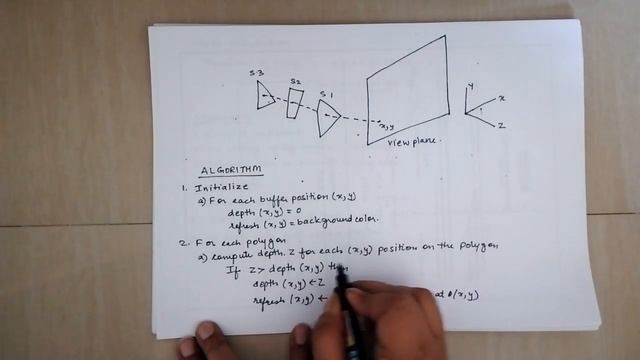 S3
S2
S1
x,y
view plane.
Y
X
Z
ALGORITHM
1. Initialize
a) For each buffer position (x,y)
depth (x,y) = 0
refresh (x,y) = background color.
2. For each polygon
a) compute depth. Z for each (x,y) position on the polygon
If Z > depth (x,y) then
depth (x,y) ← Z
refresh (x,y) ← at (x,y)